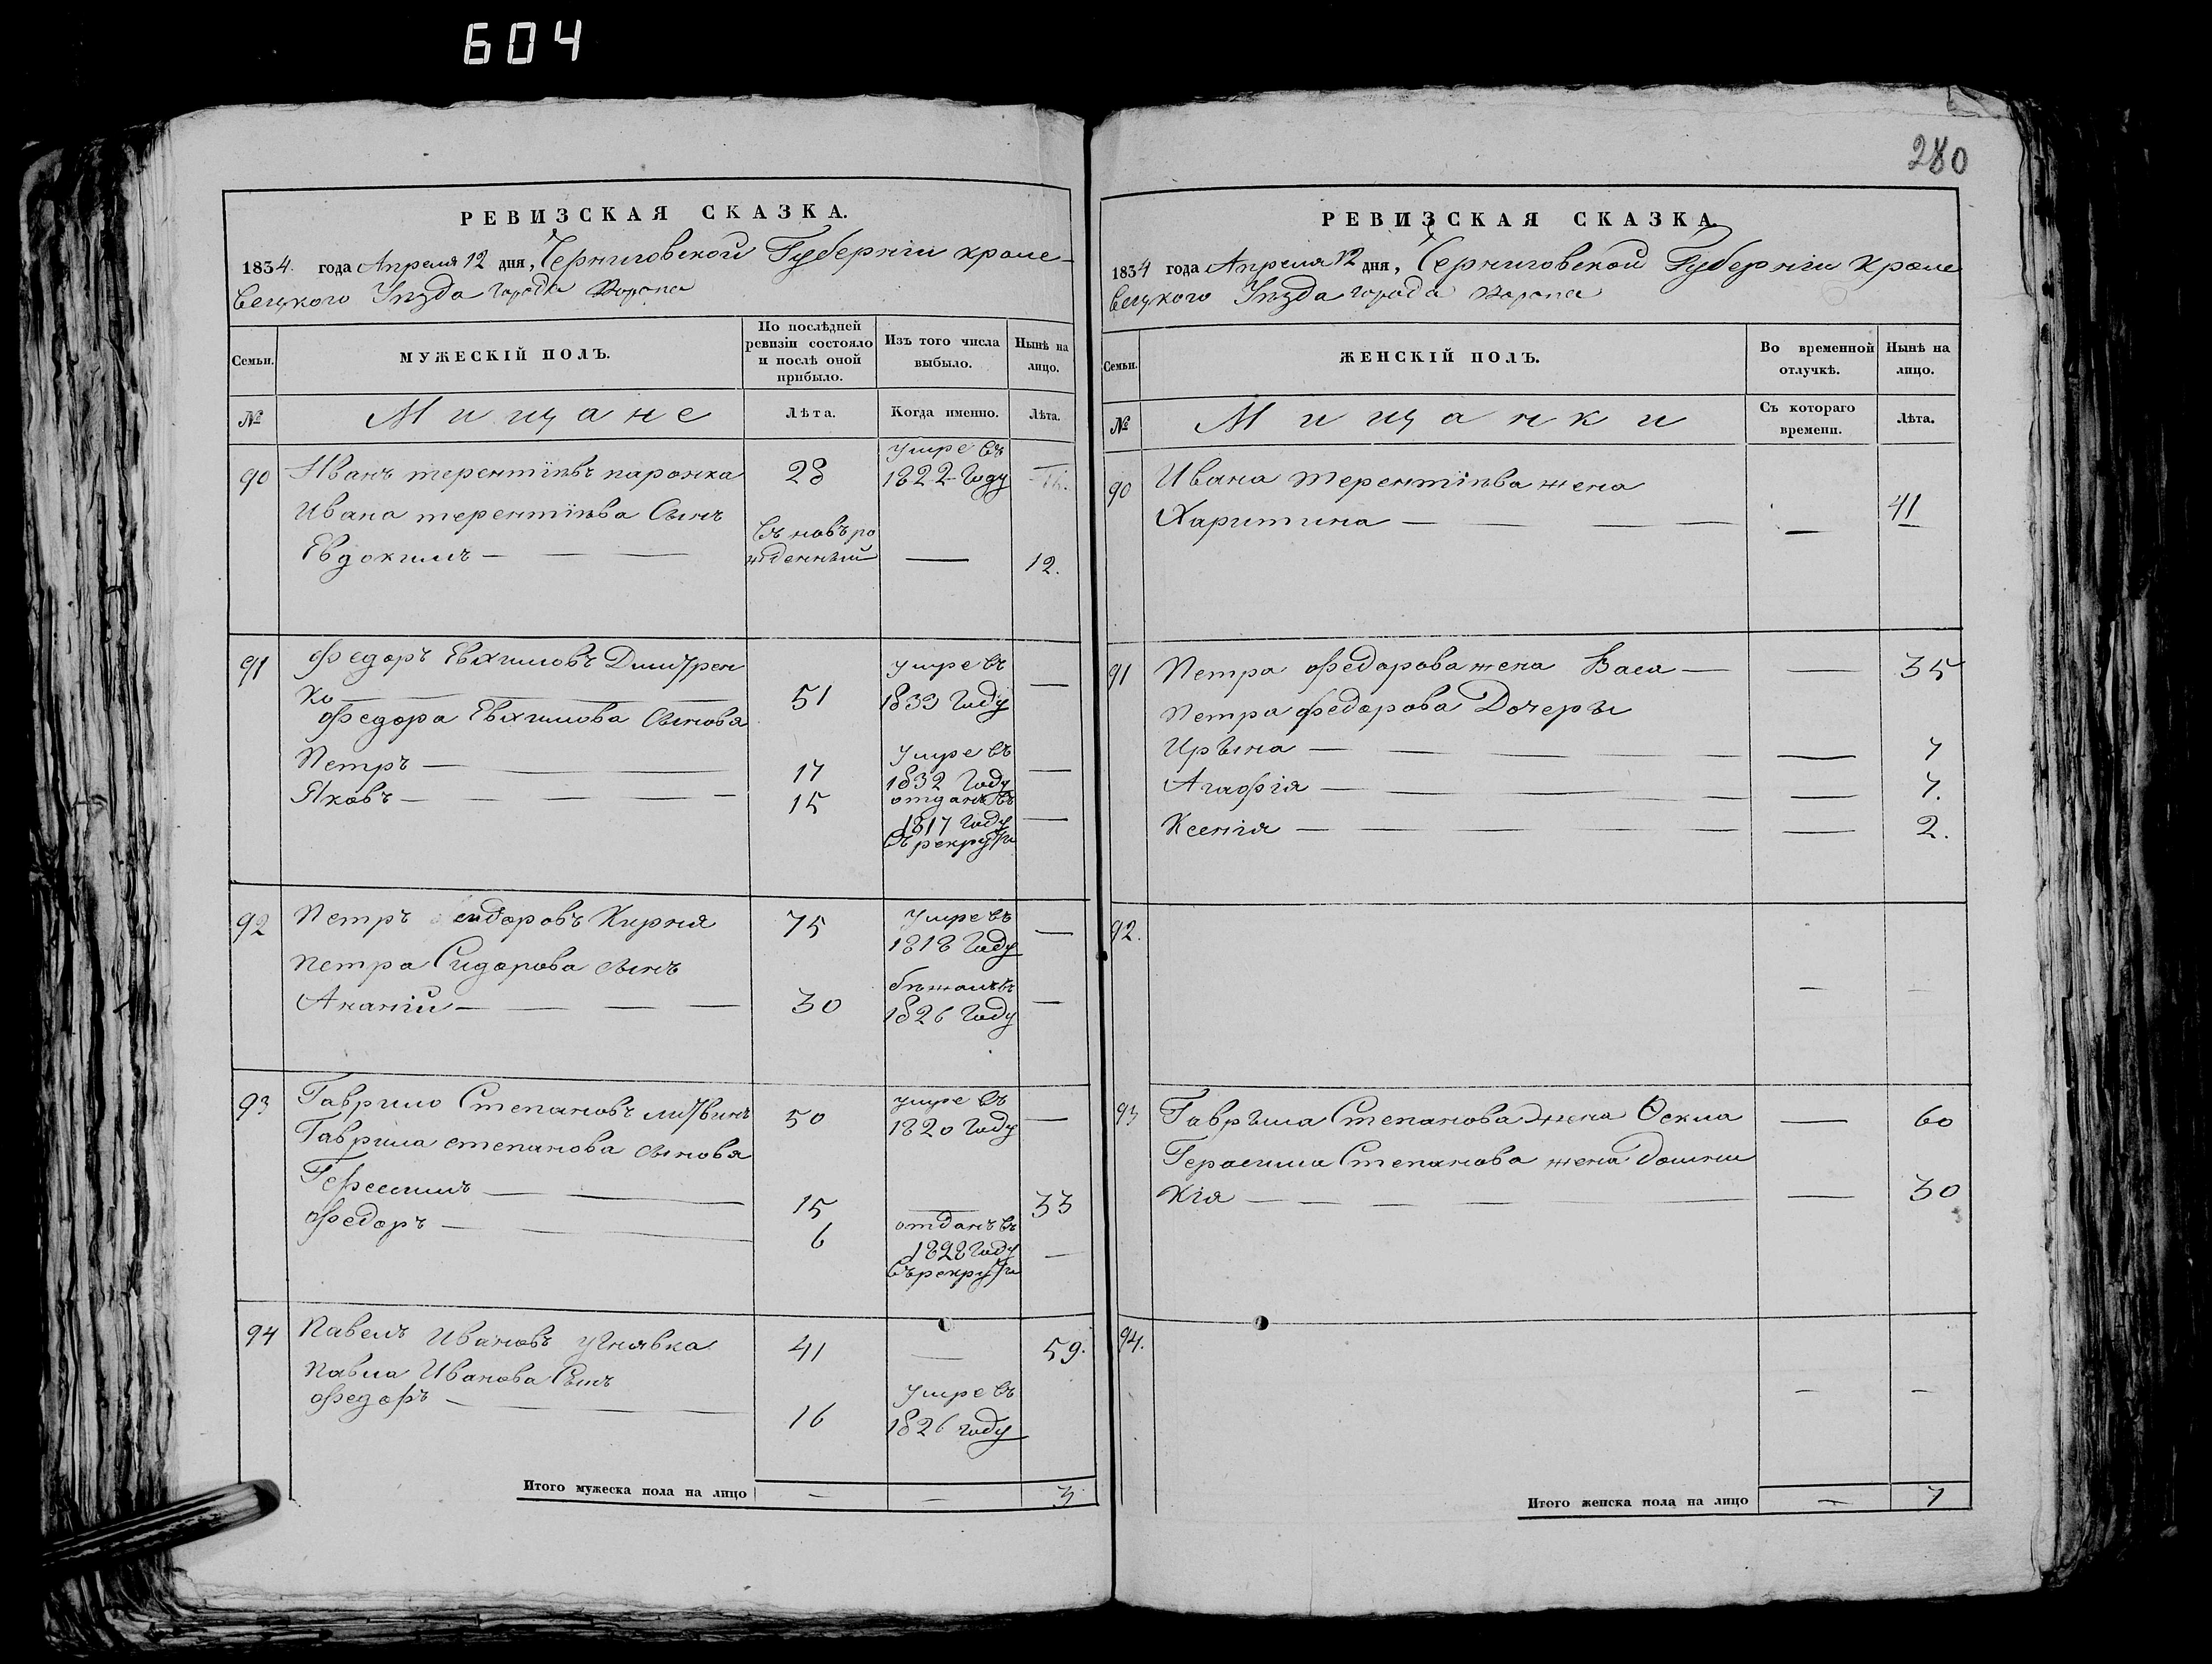 604
280
РЕВИЗСКАЯ СКАЗКА.
1834. года Апреля 12 дня, Черниговской Губернiи кроле-
вецкого Уѣзда города Воропа
Семьи.
МУЖЕСКIЙ ПОЛЪ.
По послѣдней ревизiи состояло и послѣ оной прибыло.
Изъ того числа выбыло.
Нынѣ на лицо.
№
Мищане
Лѣта.
Когда именно.
Лѣта.
90 Иванъ терентiѣвъ паронка 28 умре въ 1822 Году
Ивана терентiѣва Сынъ
Евдокимъ — въ новъ рожденный — 12.
91 Федоръ Евхимовъ Дмитрен
ко 51 умре въ 1833 Году —
Федора Евхимова Сыновя
Петръ — 17 Умре въ 1832 Году —
Яковъ — 15 отданъ въ 1817 году въ рекруты —
92 Петръ Сидоровъ Кирня 75 Умре въ 1818 Году —
Петра Сидорова сынъ
Ананiй — 30 бѣжалъ въ 1826 Году —
93 Гаврило Степановъ литвинъ 50 умре въ 1820 Году —
Гаврила степанова сыновя
Герасимъ — 15 — 33
Федоръ — 6 отданъ въ 1828 Году въ рекруты —
94 Павелъ Ивановъ угнявка 41 — 59.
Павла Иванова Сынъ
Федоръ — 16 Умре въ 1826 году
Итого мужеска пола на лицо — — 3
РЕВИЗСКАЯ СКАЗКА.
1834 года Апреля 12 дня, Черниговской Губернiи Кроле
вецкого Уѣзда города Воропа
Семьи.
ЖЕНСКIЙ ПОЛЪ.
Во временной отлучкѣ.
Нынѣ на лицо.
№
Мищанки
Съ котораго времени.
Лѣта.
90 Ивана Терентiѣва жена
Харитина — — 41
91 Петра Федорова жена Васа — — 35
Петра Федорова Дочеры
Ирына — — 7
Агафiя — — 7.
Ксенiя — — 2.
92. — —
93 Гаврыла Степанова жена Фекла — 60
Герасима Степанова жена Домни
кiя — — 30
94. — —
Итого женска пола на лицо — 7